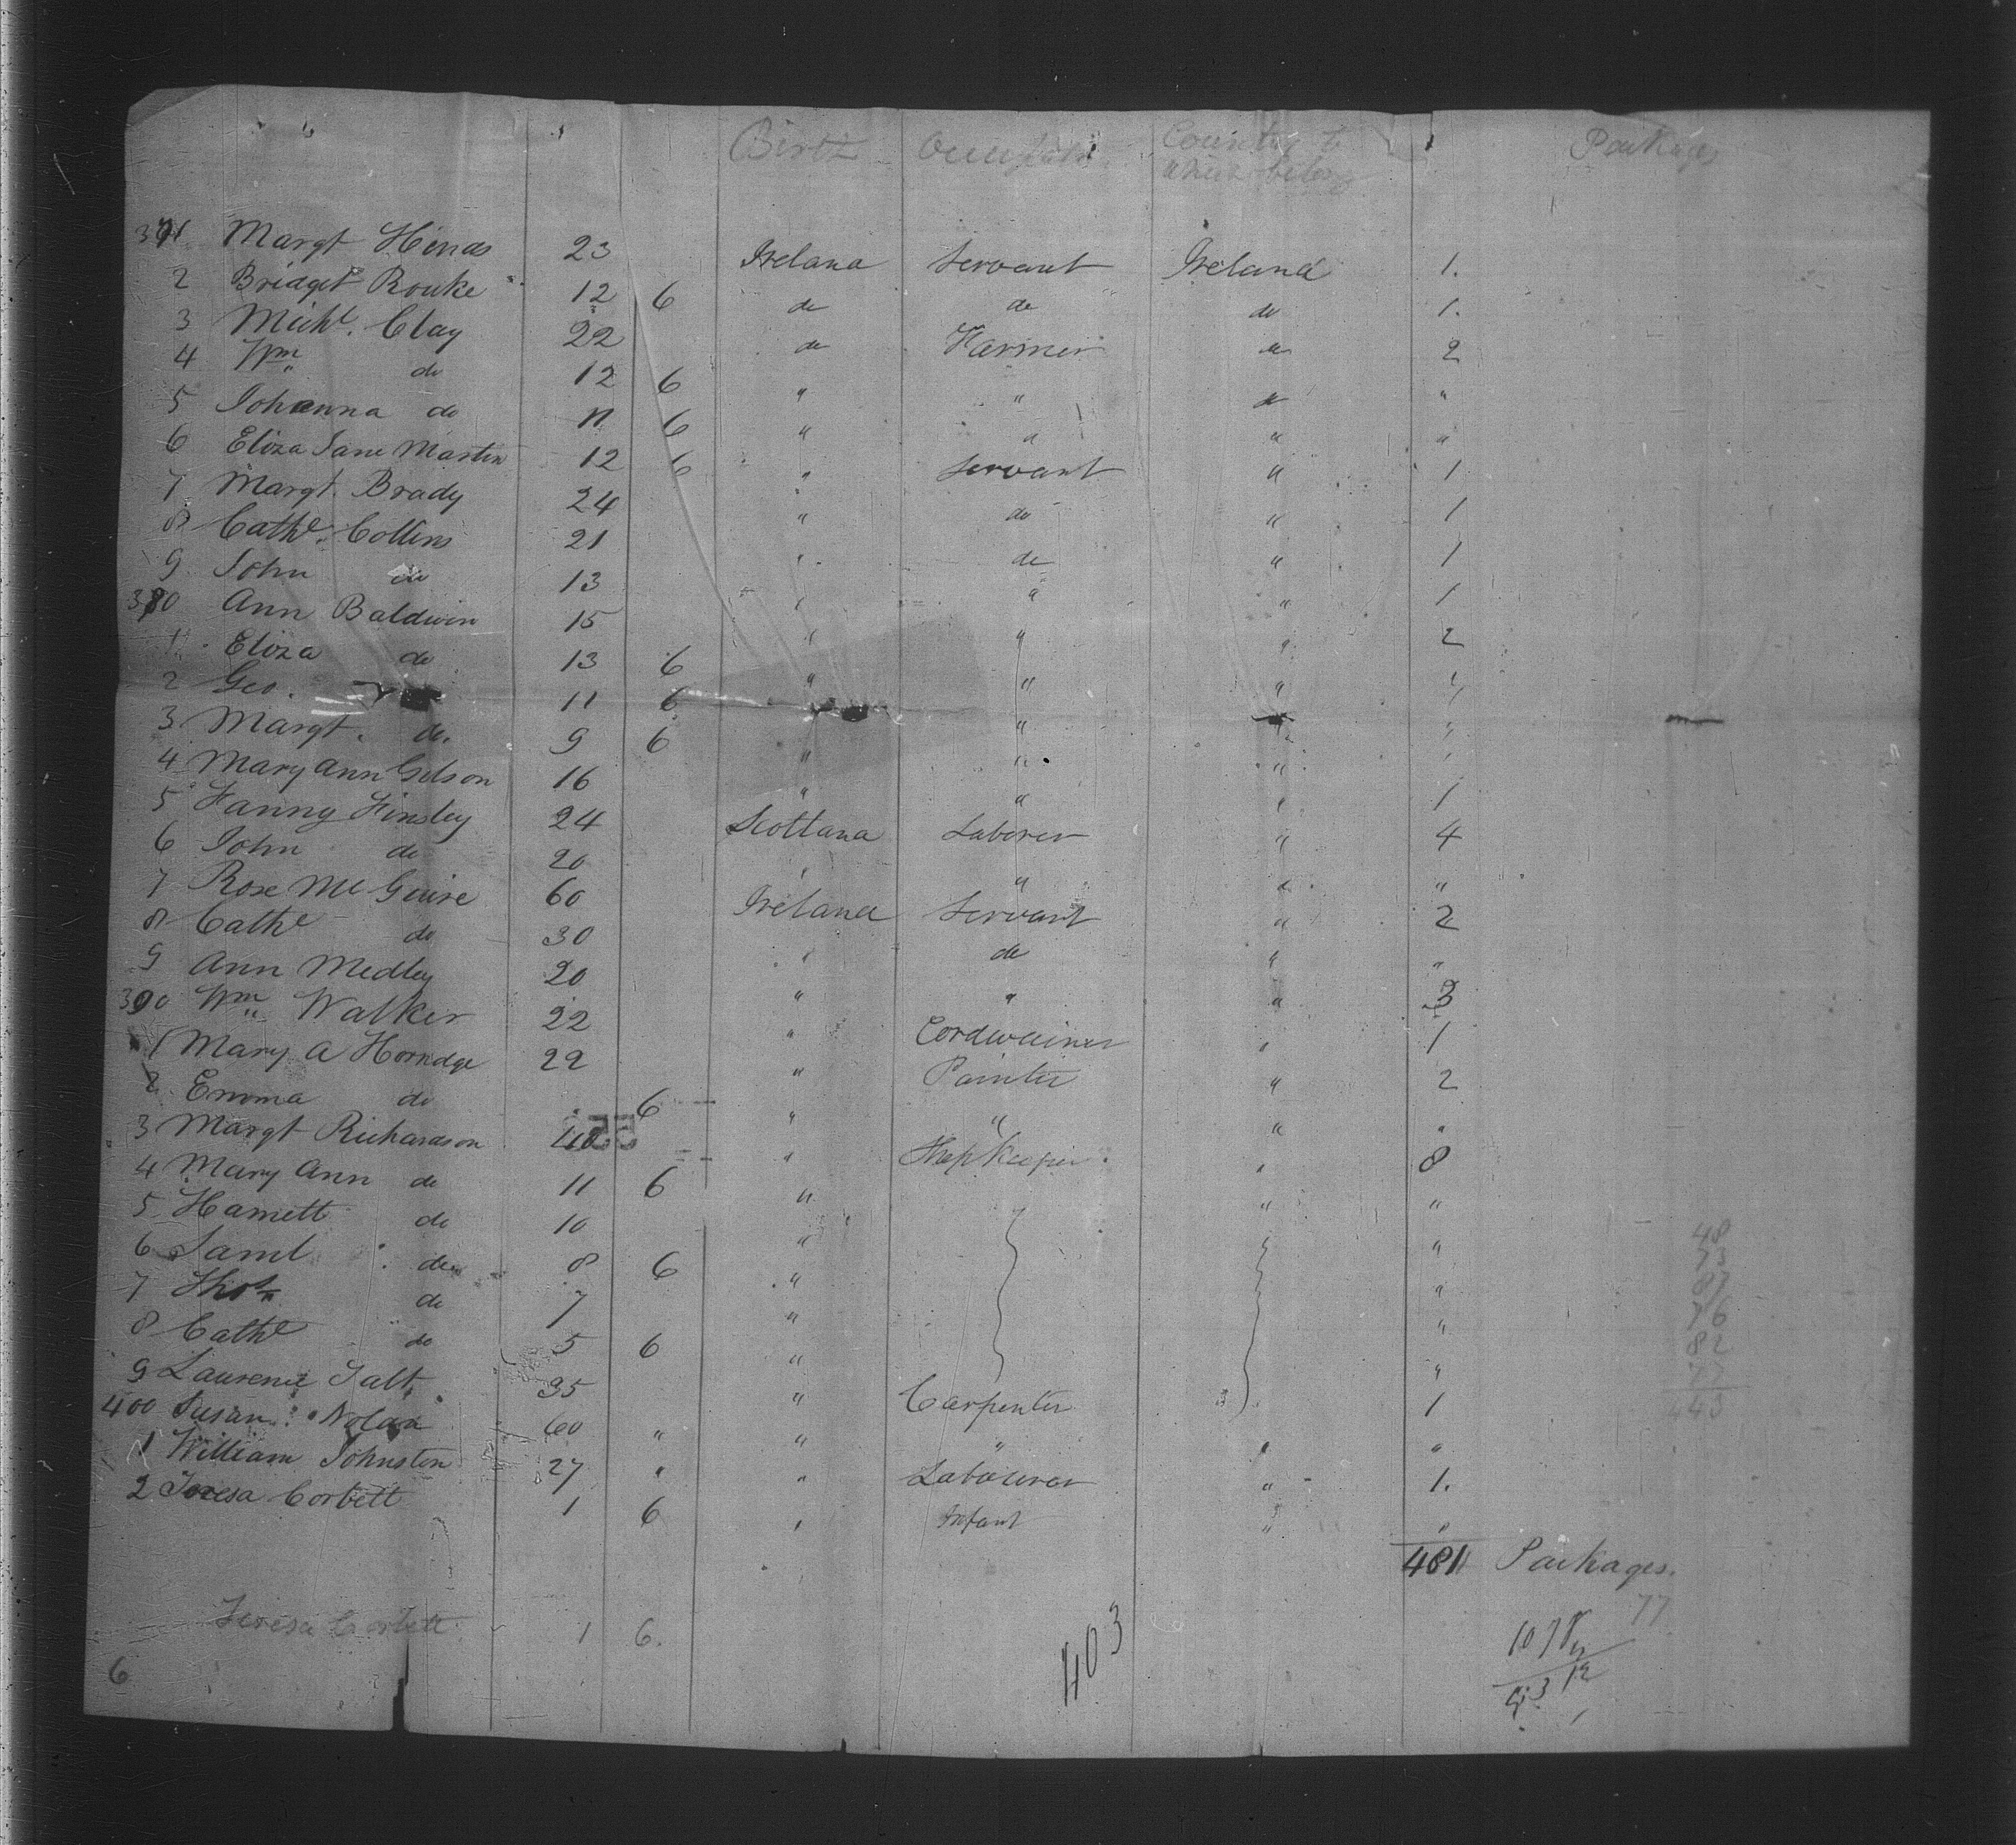 Birth Occupation Country to Packages
which belong
371 Margt Hinds 23 Ireland Servant Ireland 1.
2 Bridget Rouke 12 6 do do do 1.
3 Michl. Clay 22 do Farmer do 2
4 Wm do 12 6 " " do "
5 Johanna do 11 6 " " " "
6 Eliza Jane Martin 12 6 " Servant " 1
7 Margt. Brady 24 " do " 1
8 Cathe. Collins 21 " do " 1
9 John do 13 " " " 1
380 Ann Baldwin 15 " " " 2
1 Eliza do 13 6 " " " "
2 Geo. 11 6 " " "
3 Margt. do. 9 6 " " " "
4 Mary Ann Gilson 16 " " " 1
5 Fanny Finsley 24 Scotland Laborer " 4
6 John do 20 " " " "
7 Rose McGuire 60 Ireland Servant " 2
8 Cathe do 30 " do " "
9 Ann Medley 20 " " " 3
390 Wm Walker 22 " Cordwainer " 1
1 Mary A Horridge 22 " Painter " 2
2 Emma do 6 " " " "
3 Margt Richardson 40 " Shop Keeper. " 8
4 Mary Ann do 11 6 " " "
5 Harriett do 10 " "
6 Saml do 8 6 " "
7 Thos do 7 " "
8 Cathe do 5 6 " "
9 Laurence Salt 35 " Carpenter 1
400 Susan Nolan 60 " " " " "
1 William Johnston 27 " " Labourer " 1.
2 Teresa Corbett 1 6 " Infant " "
481 Packages.
Teresa Corbett 1 6.
6
403
48
73
87
76
82
77
443
77